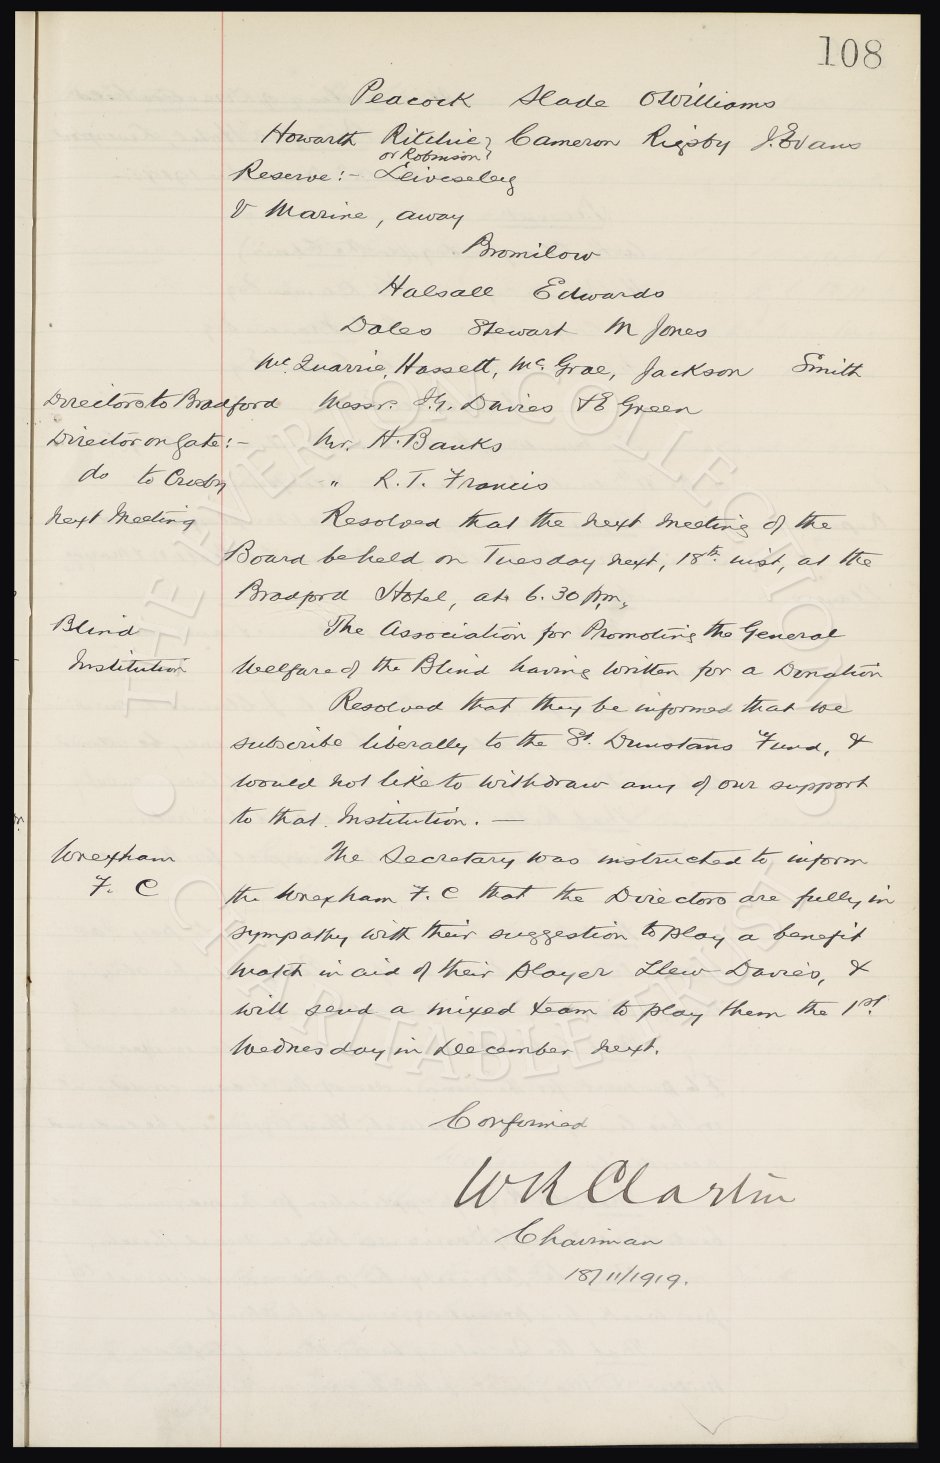 108
Peacock Slade O Williams
Howarth Ritchie, Cameron Rigsby J. Evans
or Robinson?
Reserve:- Leivesley
V Marine, away
Bromilow
Halsall Edwards
Dales Stewart M Jones
Mc. Quarrie, Hassett, Mc. Grae, Jackson Smith
Directors to Bradford Messrs. Davies & E Green
Director on Gate:- Mr. H. Banks
do to Crosby " R. T. Francis
Next Meeting Resolved that the next meeting of the
Board be held on Tuesday next, 18th. inst, at the
Bradford Hotel, at 6.30 p.m.
Blind The Association for Promoting the General
Institution Welfare of the Blind having written for a Donation
Resolved that they be informed that we
subscribe liberally to the St. Dunstans Fund, &
would not like to withdraw any of our support
to that Institution. —
Wrexham The Secretary was instructed to inform
F. C the Wrexham F. C that the Directors are fully in
sympathy with their suggestion to play a benefit
match in aid of their player Llew Davies, &
will send a mixed team to play them the 1st.
Wednesday in December next.
Confirmed
W R Clayton
Chairman
18/11/1919.
THE EVERTON COLLECTION
CHARITABLE TRUST